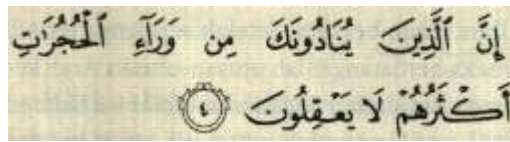 إِنَّ ٱلَّذِينَ يُنَادُونَكَ مِن وَرَآءِ ٱلْحُجُرَٰتِ
أَكْثَرُهُمْ لَا يَعْقِلُونَ ٤